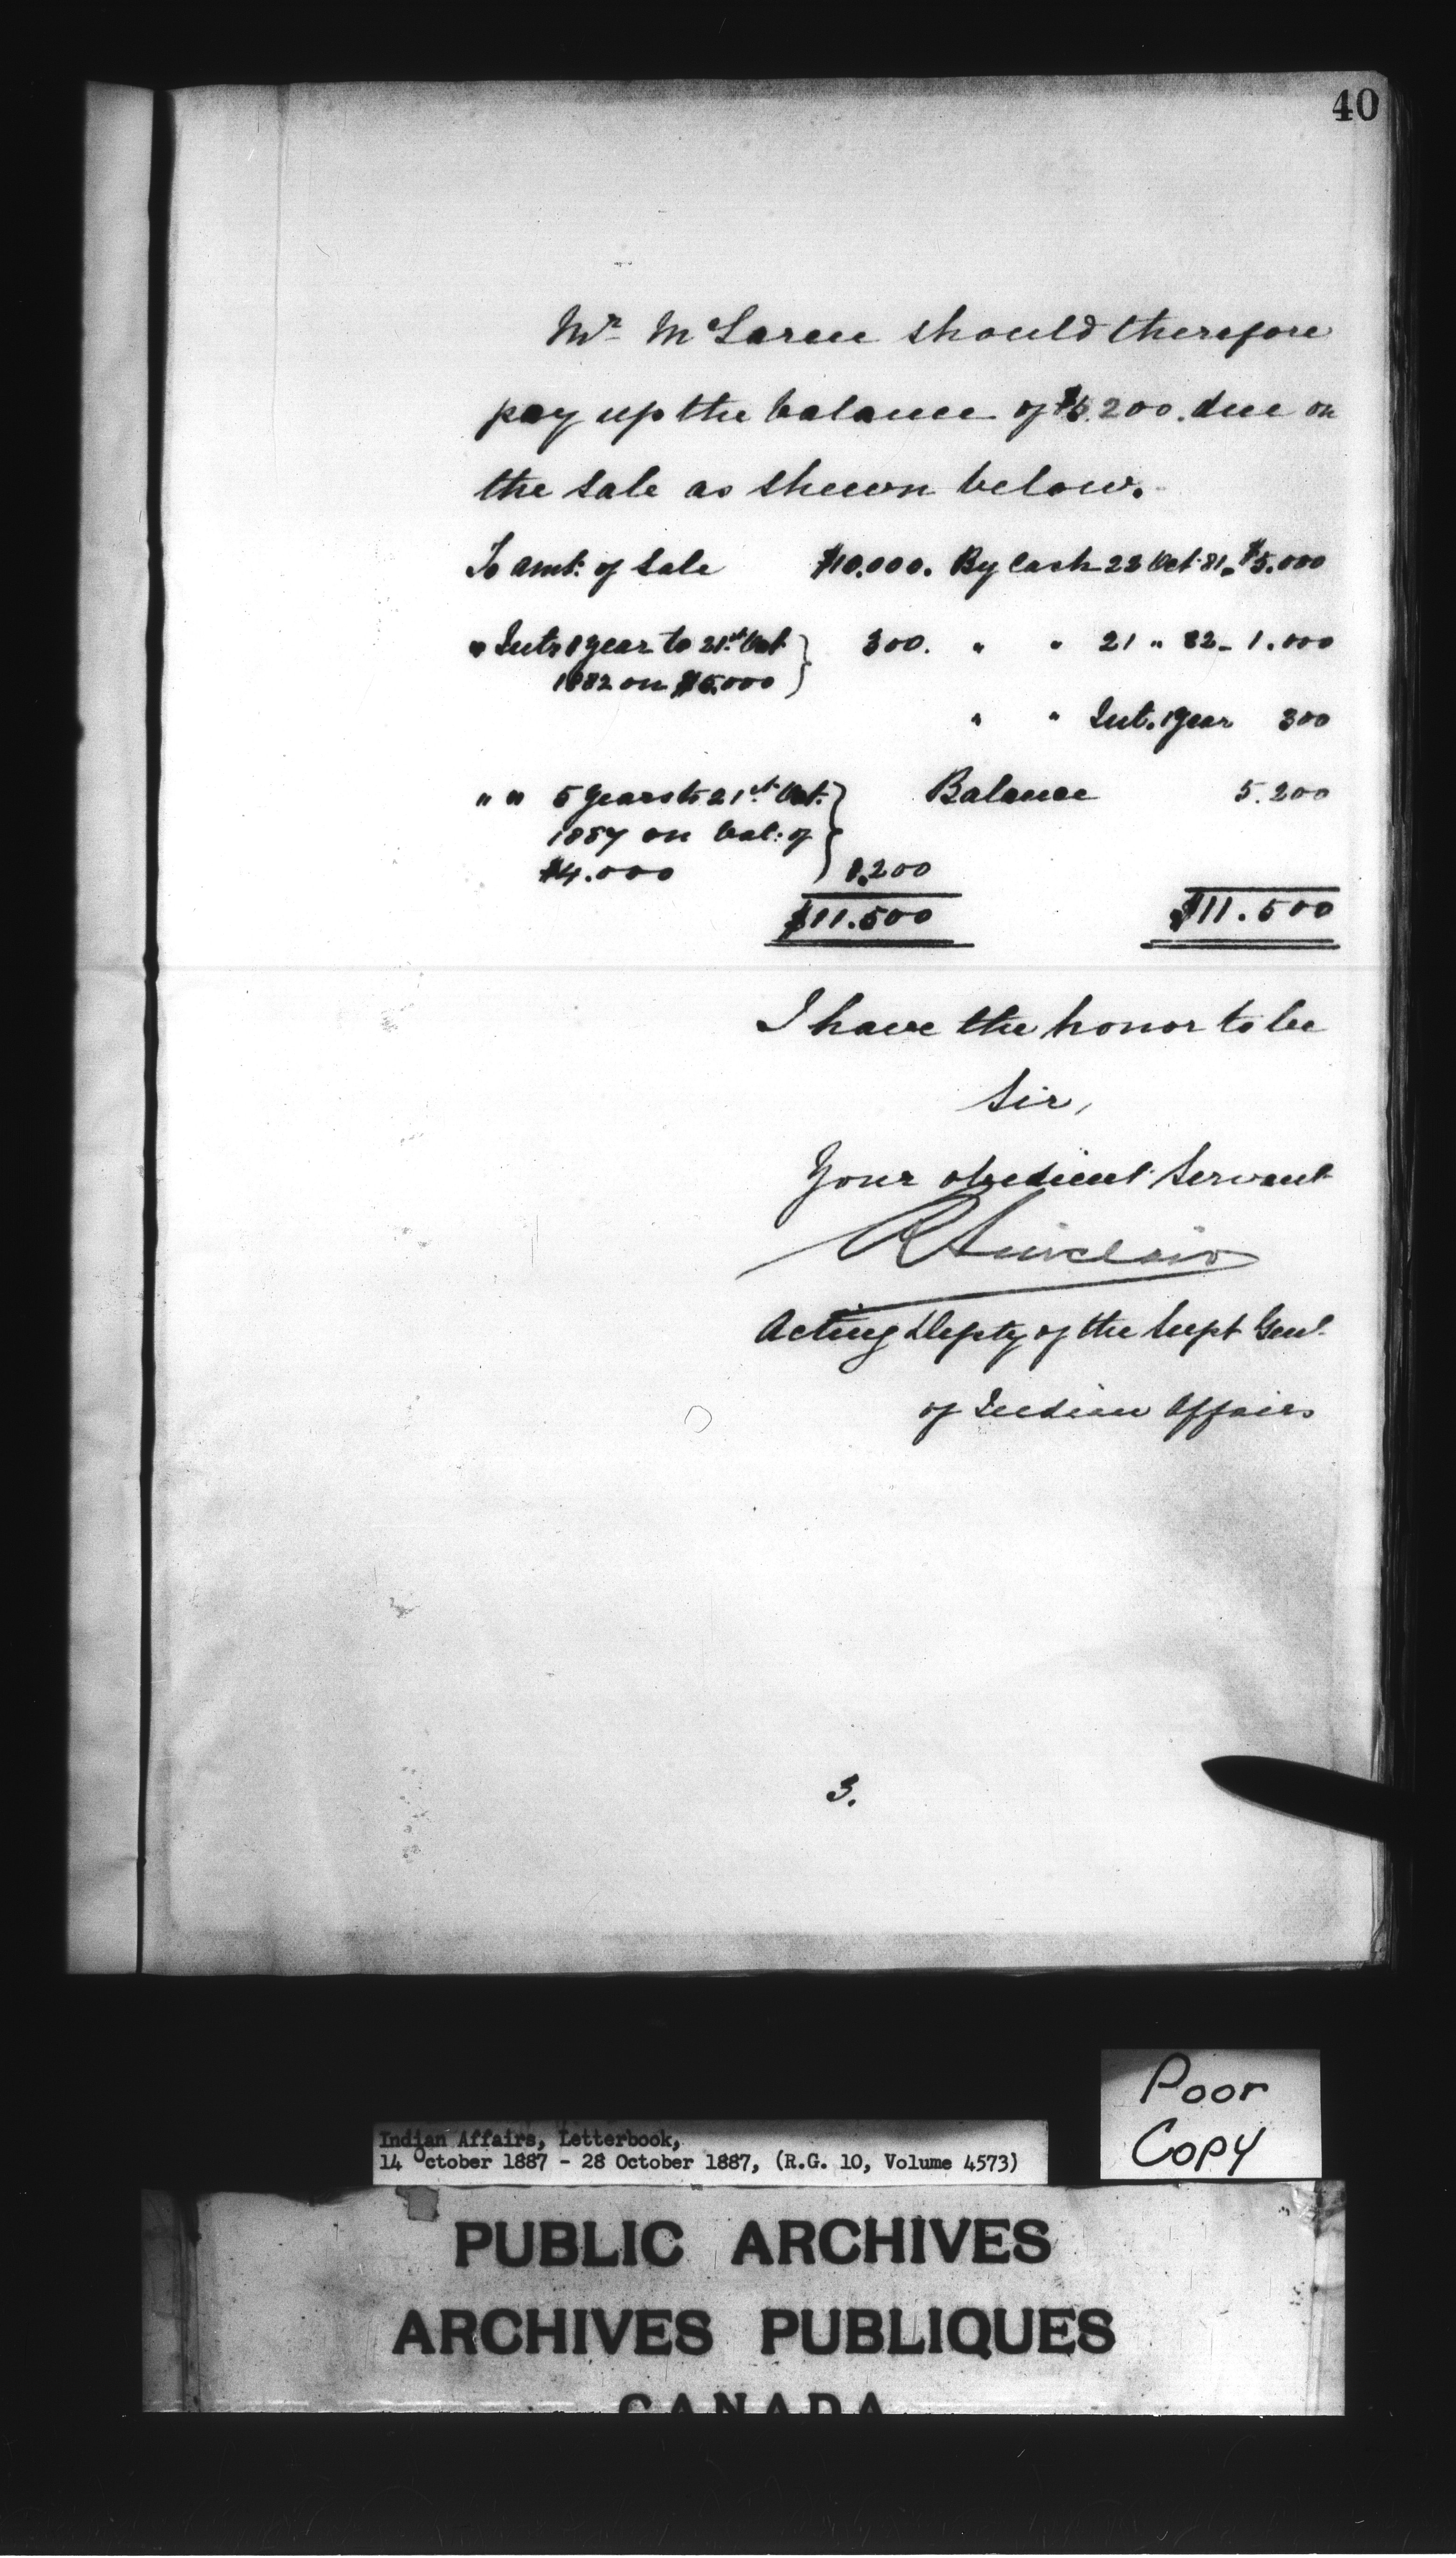 40
Mr McLaren should therefore
pay up the balance of $5.200. due on
the sale as shewn below.
To amt. of Sale $10.000. By Cash 22 Oct. 81. $5.000
" Int. 1 year to 21st Oct. } 300. " " 21 " 82 - 1.000
1882 on $5.000
" " Int. 1 year 300
" " 5 years to 21st Oct. } Balance 5.200
1887 on bal: of
$4.000 1.200
$11.500 $11.500
I have the honor to be
Sir,
Your obedient Servant
R Sinclair
Acting Depty of the Supt Genl.
of Indian Affairs
3.
Poor
Copy
Indian Affairs, Letterbook,
14 October 1887 - 28 October 1887, (R.G. 10, Volume 4573)
PUBLIC ARCHIVES
ARCHIVES PUBLIQUES
CANADA